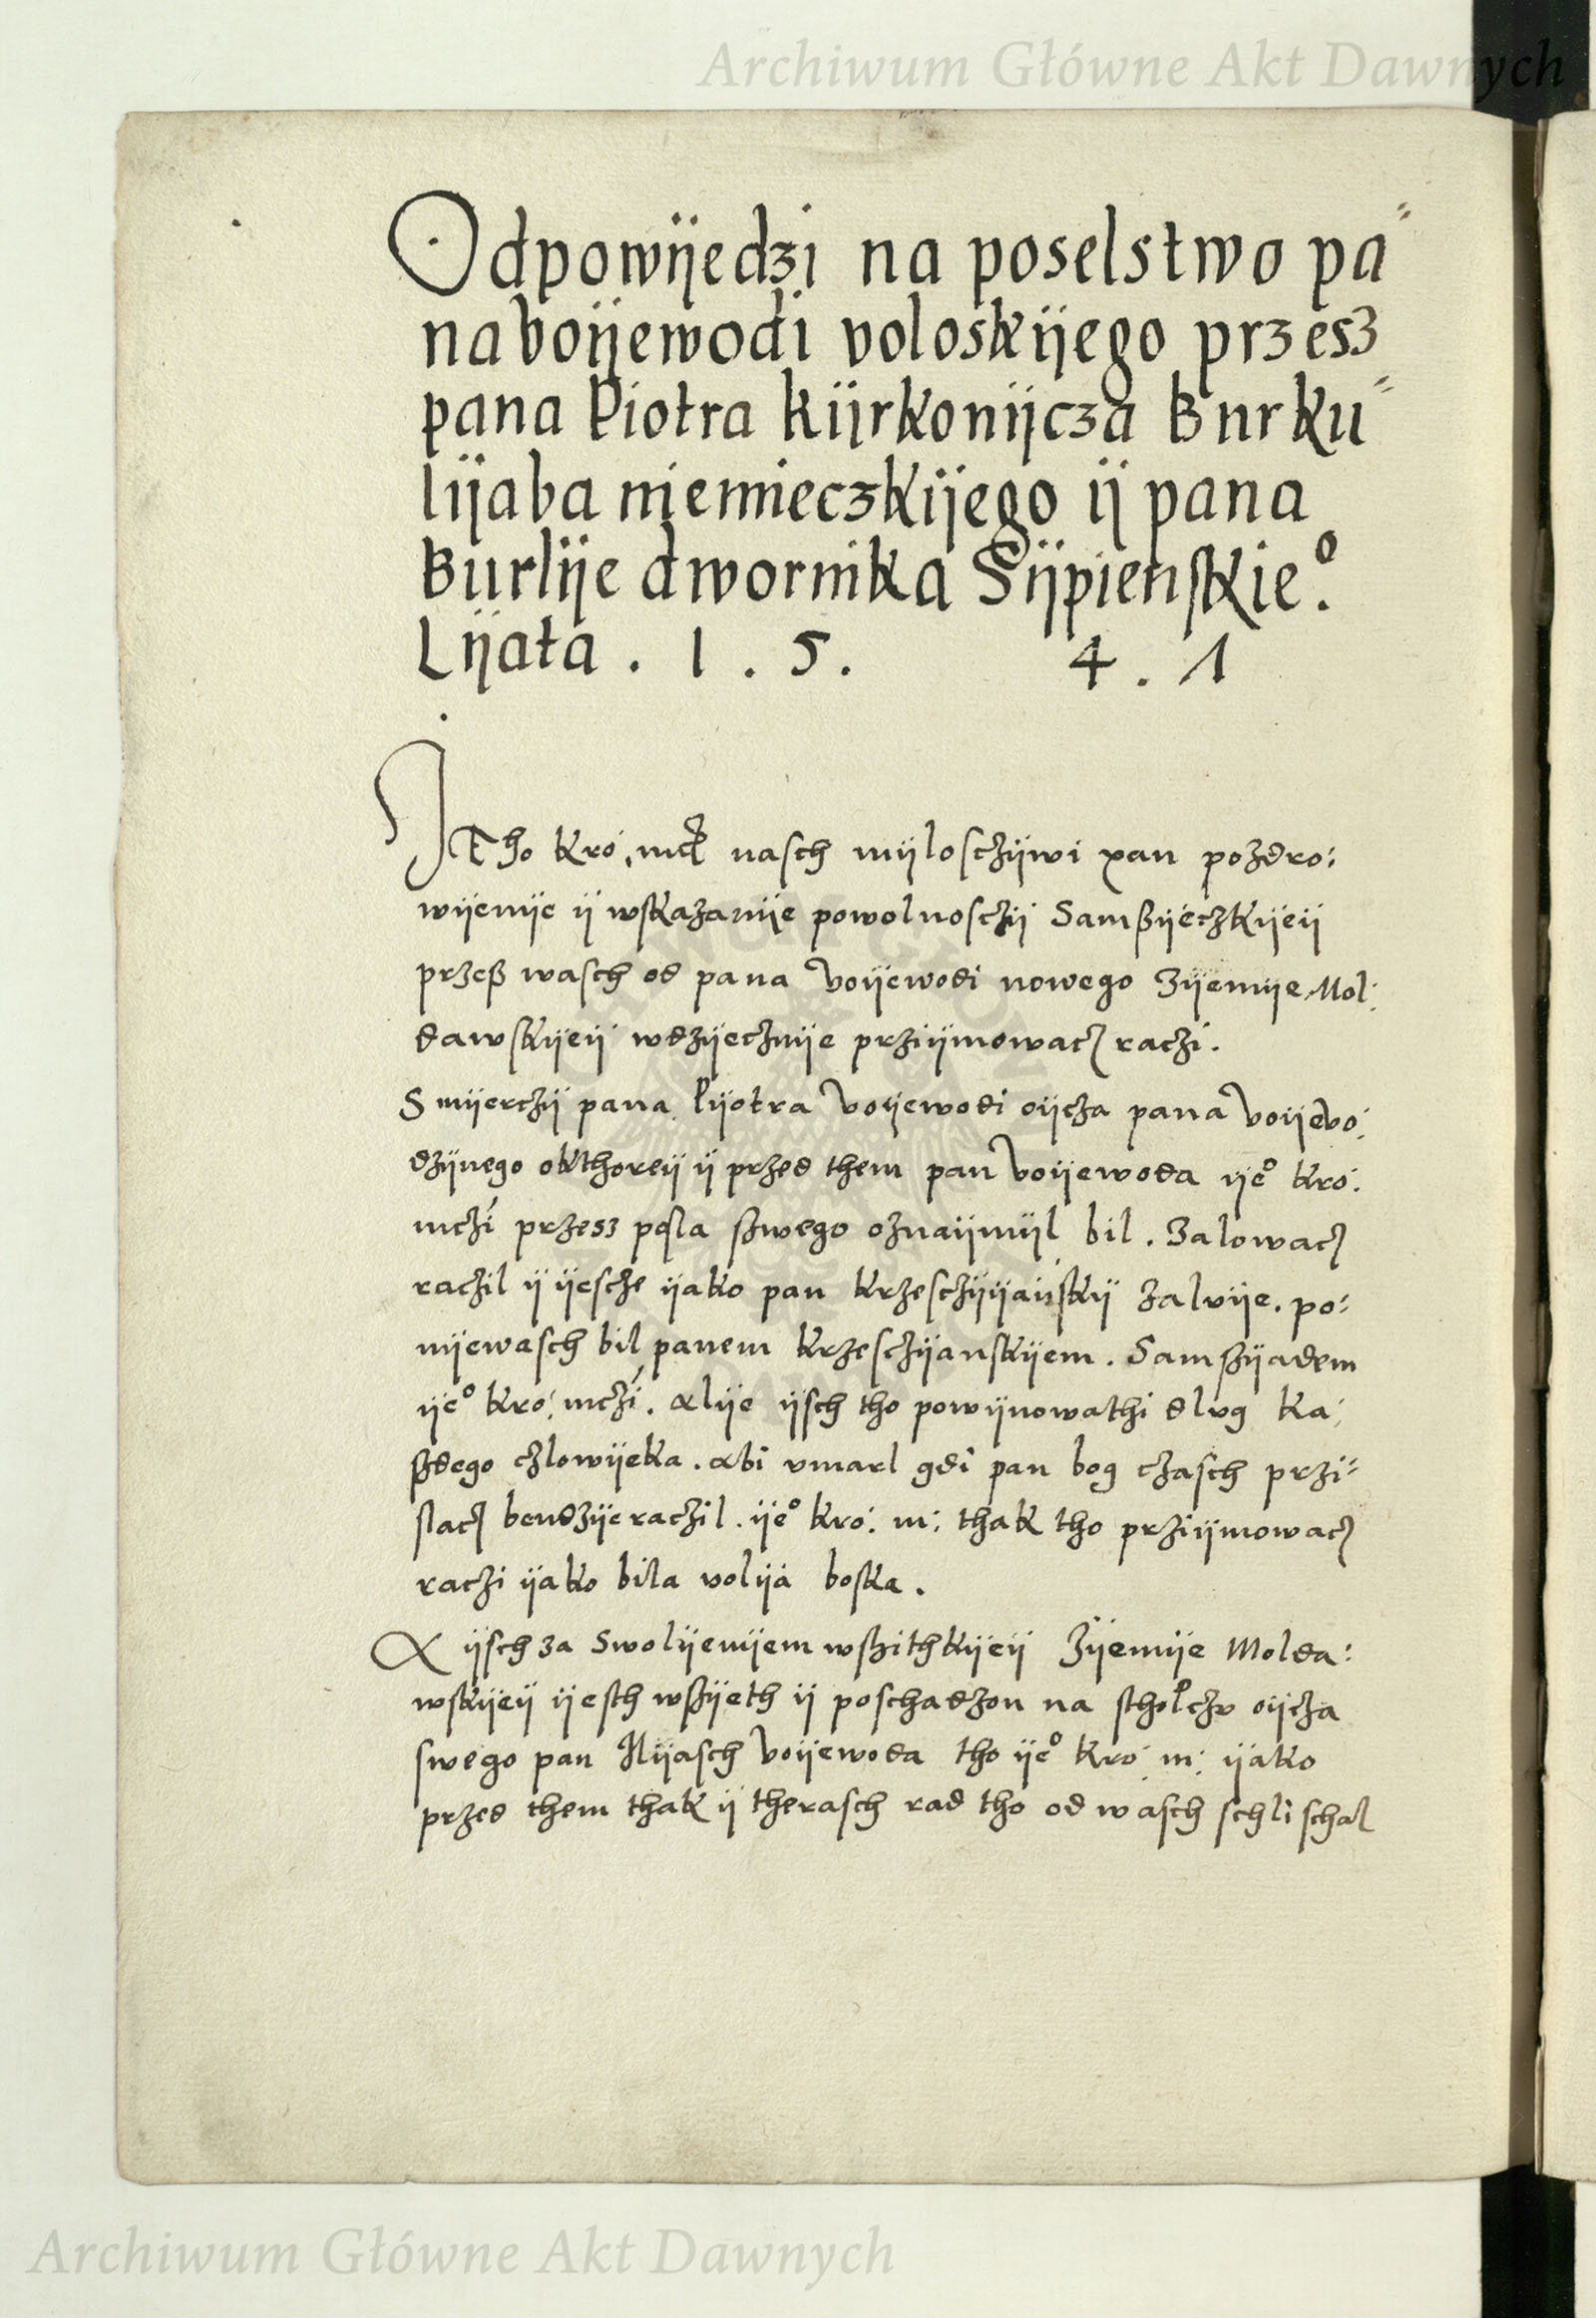 Archiwum Główne Akt Dawnych
Odpowijedzi na poselstwo pa⸗
na voijewodi voloskijego przesz
pana Piotra Kijrkonijcza Burku⸗
lijaba niemieczkijego ij pana
Burlije dwornika Sijpienskieº.
Lijata . 1 . 5 . 4 . 1
Jego Kro: mcz nasch mijlosczijwi pan pozdro:
wijenije ij wskazanije powolnosczij Samßijeczkijeij
przeß wasch od pana voijewodi nowego Zijemije Mol:
dawskijeij wdzijecznije przijmowacz raczi.
Smijerczij pana Pijotra voijewodi oijcza pana voijevo:
dzijnego okthoreij ij przed them pan voijewoda ijeº kro:
mczi przesz posla szwego oznaijmijl bil. Zalowacz
raczil ij ijescze ijako pan krzesczijijanskij zalvije. po:
nijewasch bil panem krzesczijanskijem. Samßijadem
ijeº kro: mczi. alije ijsch tho powijnowathi dlvg ka:
szdego czlowijeka. abi vmarl gdi pan bog czasch przi⸗
slacz bendzije raczil. ijeº kro: m: thak tho przijmowacz
raczi ijako bila volija boska.
A ijsch za swolijenijem wszithkijeij Zijemije Molda:
wskijeij ijesth wszijeth ij poschadzon na stholczv oijcza
swego pan Ilijasch voijewoda tho ijeº kro: m: ijako
przed them thak ij therasch rad tho od wasch schlischal
Archiwum Główne Akt Dawnych